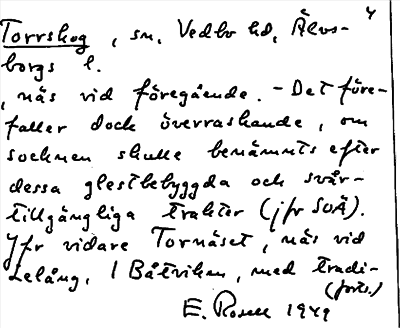 4
Torrskog, sn, Vedbo hd, Älvs-
borgs l.
, näs vid föregående. - Det före-
faller dock överraskande, om
socknen skulle benämnts efter
dessa glestbebyggda och svår-
tillgängliga trakter (jfr SOÄ).
Jfr vidare Tornäset, näs vid
Lelång, i Båtviken, med tradi-
(forts.)
E. Rosell 1949